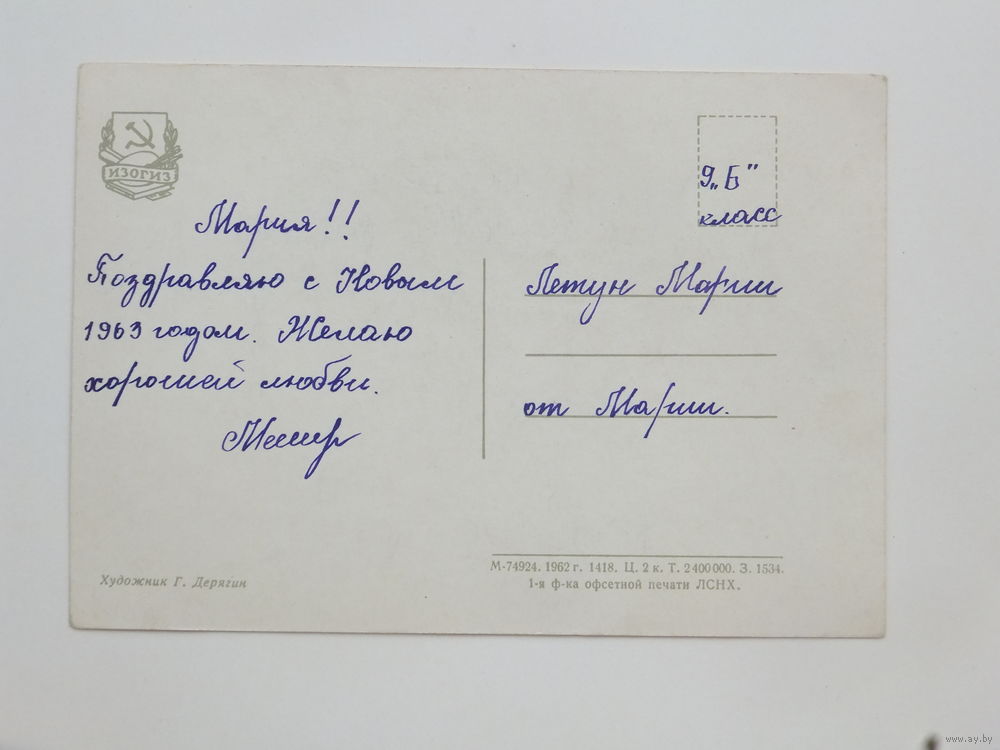 ИЗОГИЗ
Мария!!
Поздравляю с Новым
1963 годом. Желаю
хорошей любви.
9 „Б"
класс
Летун Марии
от Марии.
Художник Г. Дерягин
М-74924. 1962 г. 1418. Ц. 2 к. Т. 2 400 000. З. 1534.
1-я ф-ка офсетной печати ЛСНХ.
www.ay.by